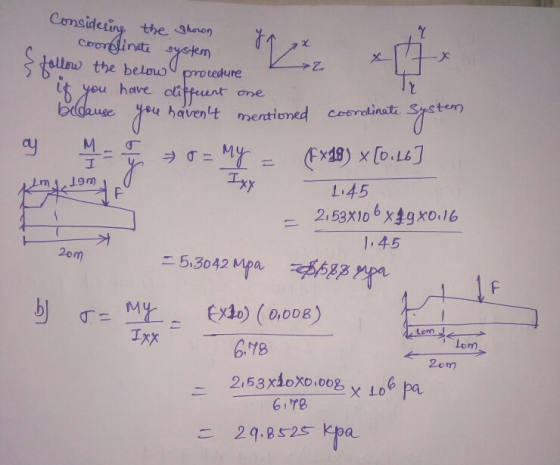 Considering the shown
coordinate system
{ follow the below procedure
if you have different one
because you haven't mentioned coordinate system
y x z
x x
a) M/I = σ/y ⇒ σ = My/Ixx = (F×19) × [0.16] / 1.45
1m 19m F
20m
= 2.53×10⁶×19×0.16 / 1.45
= 5.3042 Mpa
b) σ = My/Ixx = (F×10) (0.008) / 6.78
F
10m 10m
20m
= 2.53×10×0.008 / 6.78 × 10⁶ pa
= 29.8525 Kpa